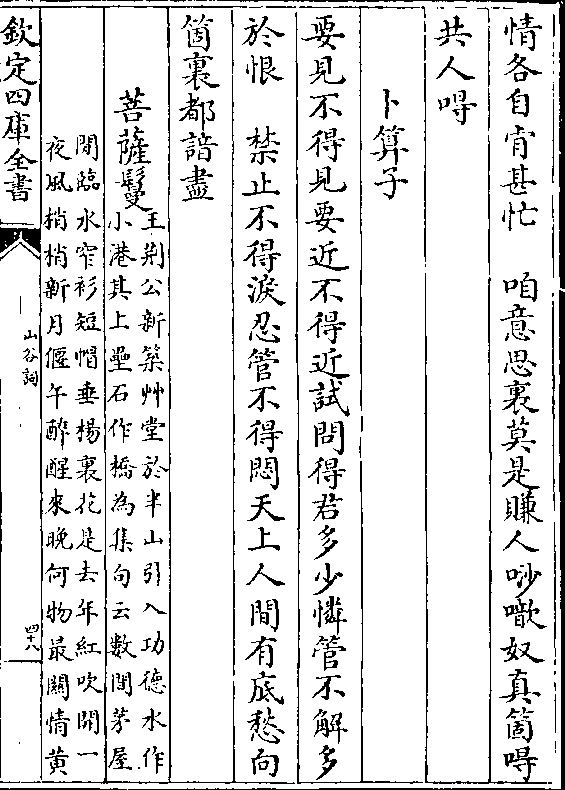 情各自肯甚忙　咱意思裏莫是賺人唦噷奴真箇㖷
共人㖷
卜算子
要見不得見要近不得近試問得君多少憐管不解多
於恨　禁止不得淚忍管不得悶天上人間有底愁向
箇裏都諳盡
菩薩鬘
王荆公新築艸堂於半山引入功德水作
小港其上壘石作橋為集句云數閒茅屋
閒臨水窄衫短帽垂楊裏花是去年紅吹開一
夜風梢梢新月偃午醉醒來晚何物最關情黃
欽定四庫全書
山谷詞
四十八